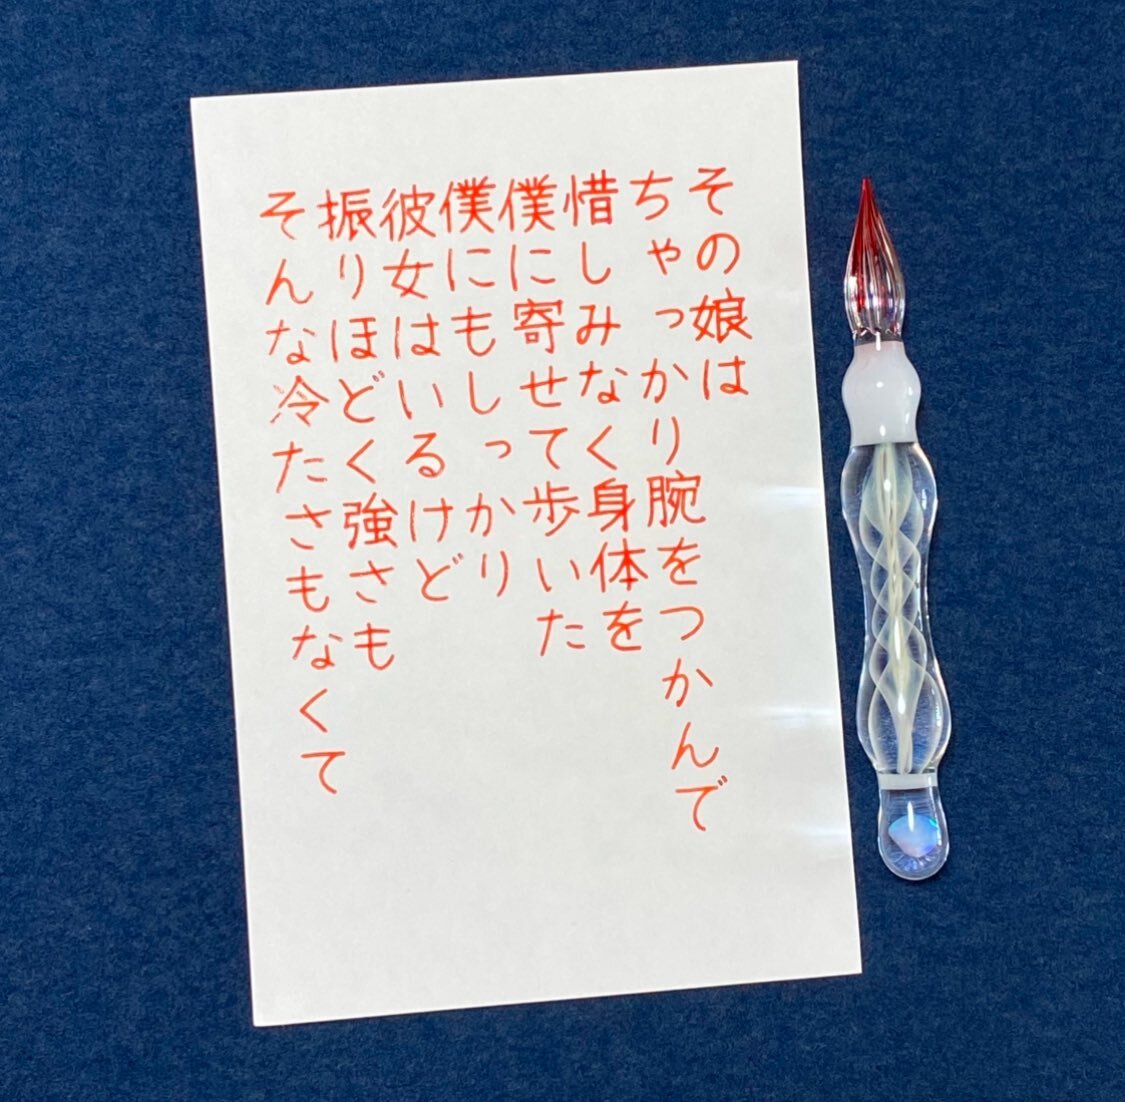 その娘は
ちゃっかり腕をつかんで
惜しみなく身体を
僕に寄せて歩いた
僕にもしっかり
彼女はいるけど
振りほどく強さも
そんな冷たさもなくて